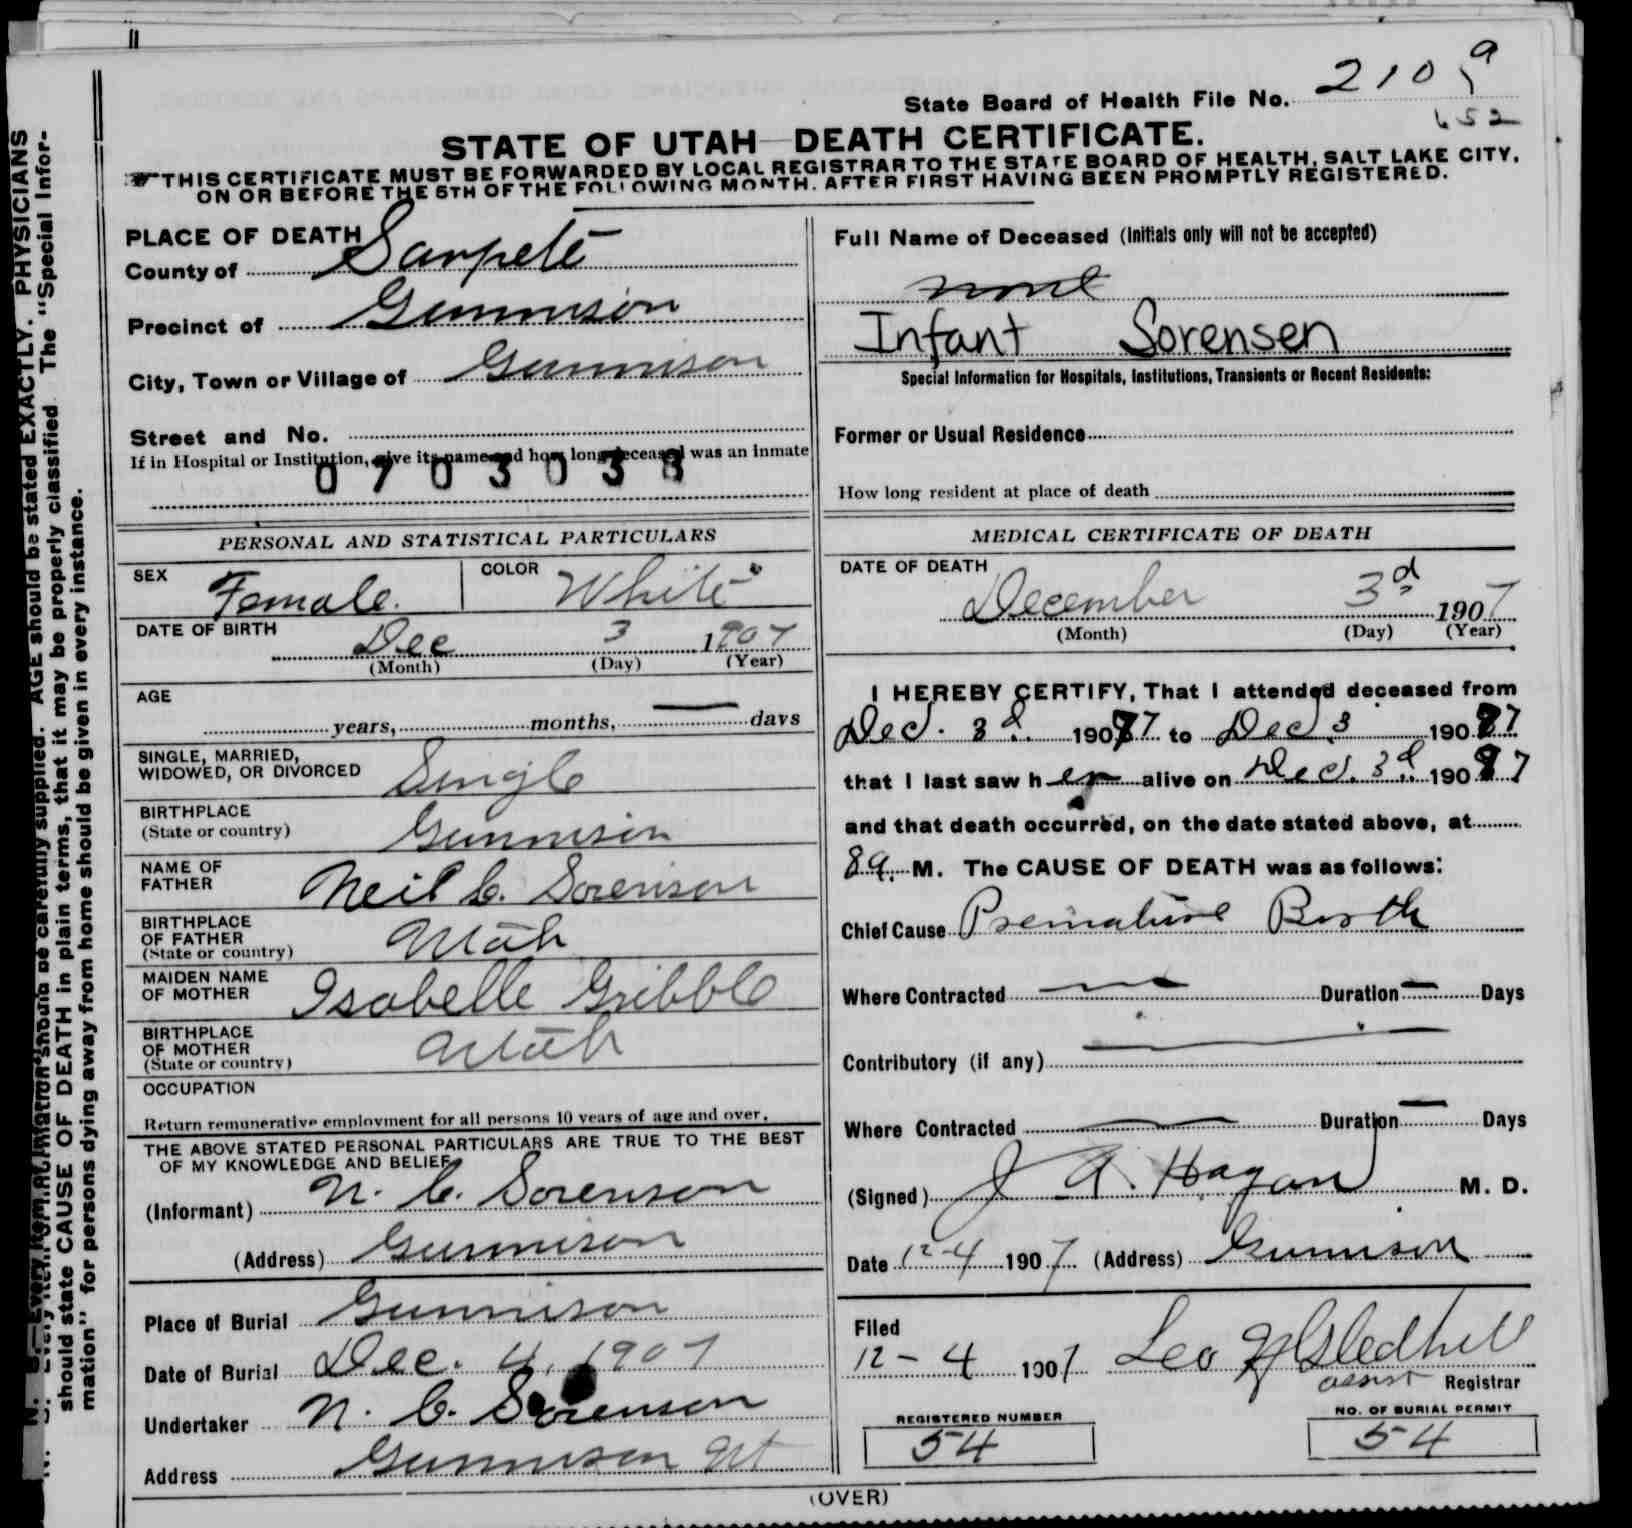 State Board of Health File No. 2109
652
STATE OF UTAH—DEATH CERTIFICATE.
THIS CERTIFICATE MUST BE FORWARDED BY LOCAL REGISTRAR TO THE STATE BOARD OF HEALTH, SALT LAKE CITY,
ON OR BEFORE THE 5TH OF THE FOLLOWING MONTH, AFTER FIRST HAVING BEEN PROMPTLY REGISTERED.
PLACE OF DEATH
County of Sanpete
Precinct of Gunnison
City, Town or Village of Gunnison
Street and No.
If in Hospital or Institution, give its name and how long deceased was an inmate
0703038
PERSONAL AND STATISTICAL PARTICULARS
SEX Female. COLOR White
DATE OF BIRTH Dec 3 1907
(Month) (Day) (Year)
AGE
years, months, — days
SINGLE, MARRIED,
WIDOWED, OR DIVORCED Single
BIRTHPLACE
(State or country) Gunnison
NAME OF
FATHER Neil C. Sorenson
BIRTHPLACE
OF FATHER
(State or country) Utah
MAIDEN NAME
OF MOTHER Isabelle Gribble
BIRTHPLACE
OF MOTHER
(State or country) Utah
OCCUPATION
Return remunerative employment for all persons 10 years of age and over.
THE ABOVE STATED PERSONAL PARTICULARS ARE TRUE TO THE BEST
OF MY KNOWLEDGE AND BELIEF
(Informant) N. C. Sorenson
(Address) Gunnison
Place of Burial Gunnison
Date of Burial Dec. 4, 1907
Undertaker N. C. Sorenson
Address Gunnison Ut
Full Name of Deceased (Initials only will not be accepted)
none
Infant Sorensen
Special Information for Hospitals, Institutions, Transients or Recent Residents:
Former or Usual Residence
How long resident at place of death
MEDICAL CERTIFICATE OF DEATH
DATE OF DEATH
December 3d 1907
(Month) (Day) (Year)
I HEREBY CERTIFY, That I attended deceased from
Dec. 3d. 1907 to Dec 3 1907
that I last saw her alive on Dec. 3d. 1907
and that death occurred, on the date stated above, at
8 a. M. The CAUSE OF DEATH was as follows:
Chief Cause Premature Birth
Where Contracted — Duration — Days
Contributory (if any) —
Where Contracted — Duration — Days
(Signed) J A. Hagan M. D.
Date 12-4 1907 (Address) Gunnison
Filed
12-4 1907 Leo Gledhill
assist Registrar
REGISTERED NUMBER
54
NO. OF BURIAL PERMIT
54
(OVER)
N. B.—Every item of information should be carefully supplied. AGE should be stated EXACTLY. PHYSICIANS
should state CAUSE OF DEATH in plain terms, that it may be properly classified The "Special Infor-
mation" for persons dying away from home should be given in every instance.